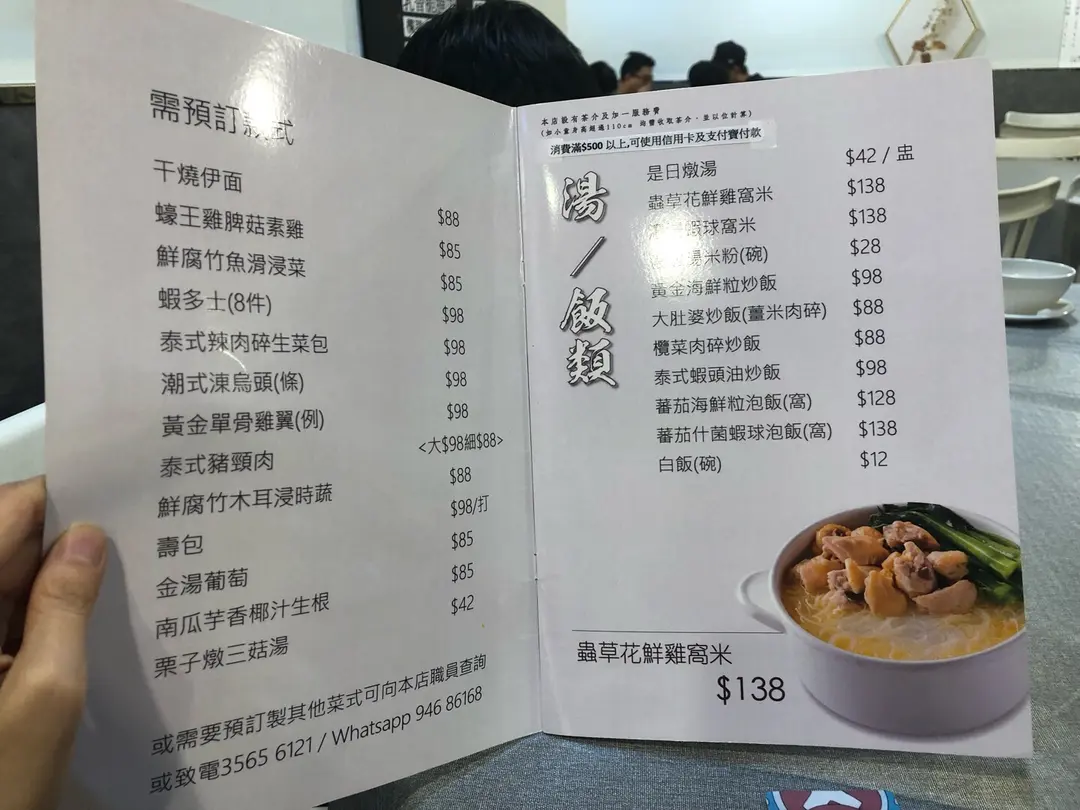 需預訂款式
干燒伊面 $88
蠔王雞脾菇素雞 $85
鮮腐竹魚滑浸菜 $85
蝦多士(8件) $98
泰式辣肉碎生菜包 $98
潮式涷烏頭(條) $98
黃金單骨雞翼(例) $98
泰式豬頸肉 <大$98細$88>
鮮腐竹木耳浸時蔬 $88
壽包 $98/打
金湯葡萄 $85
南瓜芋香椰汁生根 $85
栗子燉三菇湯 $42
或需要預訂製其他菜式可向本店職員查詢
或致電3565 6121 / Whatsapp 946 86168
本店設有茶介及加一服務費
(如小童身高超過110cm 均需收取茶介，並以位計算)
消費滿$500 以上,可使用信用卡及支付寶付款
湯／飯類
是日燉湯 $42 / 盅
蟲草花鮮雞窩米 $138
蝦球窩米 $138
湯米粉(碗) $28
黃金海鮮粒炒飯 $98
大肚婆炒飯(薑米肉碎) $88
欖菜肉碎炒飯 $88
泰式蝦頭油炒飯 $98
蕃茄海鮮粒泡飯(窩) $128
蕃茄什菌蝦球泡飯(窩) $138
白飯(碗) $12
蟲草花鮮雞窩米
$138